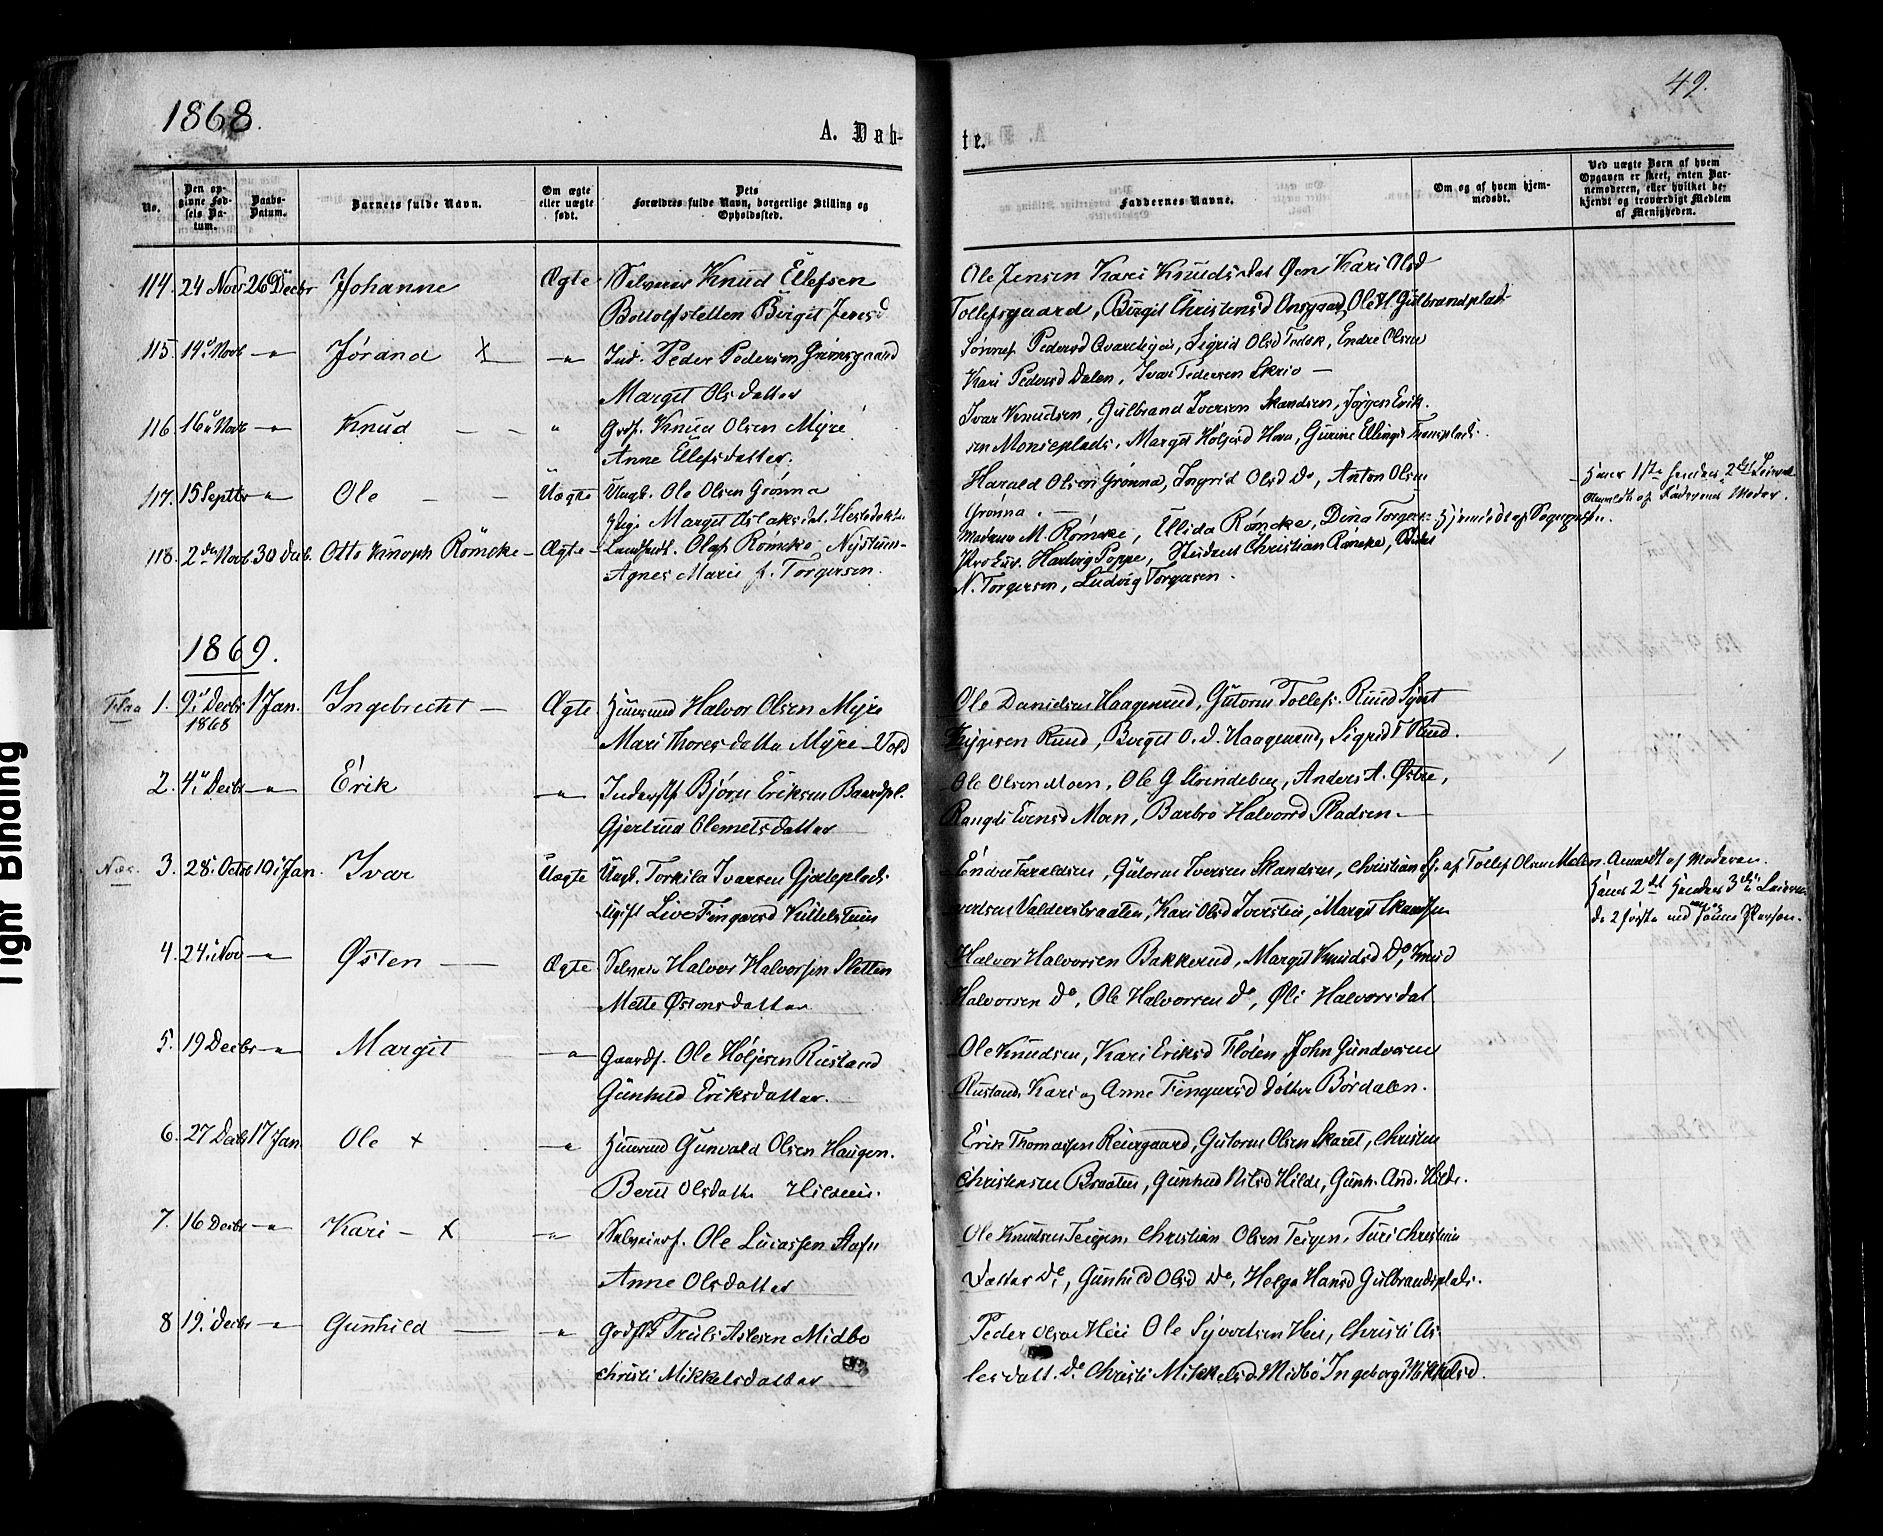 49.
1868.
A. Døb-
te.
No.
Den op-
givne Fød-
sels Da-
tum.
Daabs-
Datum.
Barnets fulde Navn.
Om ægte
eller uægte
født.
Dets
Forældres fulde Navn, borgerlige Stilling og
Opholdssted.
Faddernes Navne.
Om og af hvem hjem-
medøbt.
Ved uægte Børn af hvem
Opgaven er skeet, enten Bar-
nemoderen, eller hvilket be-
kjendt og troværdigt Medlem
af Menigheden.
114. 24 Nov 26 Decbr Johanne Ægte Selveier Knud Ellefsen
Bottolfsletten Birgit Jensd
Ole Jensen Kari Knudsdat Øen Kari Olsd
Tollefsgaard, Birgit Christensd Onsgaard, Ole H. Gulbrandsplads
115. 14 Novb -"- Jørand X -"- Ind. Peder Pedersen Grimsgaard
Marget Olsdatter
Pedersd Sigrid Olsd Endre Olsen
Kari Pedersd Dalen, Ivar Pedersen Skrio -
116. 16 Novb -"- Knud - - " Gdf. Knud Olsen Myre
Anne Ellefsdatter.
Ivar Knudsen, Gulbrand Iversen Skandsen, Jørgen Erik-
sen Monseplads, Marget Holjesd Gurine Ellingsd
117. 15 Septbr -"- Ole - - Uægte Ungk. Ole Olsen Grønna
Pige Marget Aslaksdat.
Harald Olsen Grønna, Ingrid Olsd Do, Anton Olsen
Grønna. -
Hans 1ste hendes 2det
Anmeldt af Faderens Moder.
118. 2den Novb. 30 Decb. Otto Knoph Römcke - Ægte - Landhdl. Olaf Römcke Nystuen -
Agnes Marie f. Torgersen.
Madame M. Römcke, Ellida Römcke, Dina Torgers-
Hartvig Poppe, Student Christian Römcke,
N. Torgersen, Ludvig Torgersen.
Hjemdøbt af Sognepræsten.
1869.
Flaa 1. 9 Decbr 1 Jan. Ingebrecht - Ægte Huusmd Halvor Olsen Myre
1868
Mari Thoresdatter Myre - Vold
Ole Danielsen Haagenrud, Guttorm Tollefs. Ruud
Ruud, Birgit O.d. Haagenrud, Sigrid T Ruud.
2. 4 Decbr -"- Erik -"- Inderst Bjørn Eriksen Baardpl.
Gjertrud Clemetsdatter
Ole Olsen Moen, Ole G Strindeberg, Anders A. Østre,
Rangdi Evensd Moen, Barbro Halvorsd Pladsen. -
Næs. 3. 28 Octob 10 Jan. Ivar Uægte Ungk. Torkild Ivarsen
Ugift Live Fingarsd Kittelstuen
Endre Haraldsen, Guttorm Iversen Skandsen, Christian
Valdersbraaten, Kari Olsd Iverstien, Margit Skandsen
af Tollef Olsen Moen.
Anmeldt af Moderen.
Hans 2det Hendes 3die
de 2 første ved samme Person.
4. 24 Nov -"- Østen - Ægte Selveier Halvor Halvorsen Sletten
Mette Østensdatter
Halvor Halvorsen Bakkerud, Margit Knudsd Do, Knud
Halvorsen Do, Ole Halvorsen Do, Øli Halvorsdat
5. 19 Decbr -"- Margit -"- Gaardf. Ole Holjesen Rustand
Gunhild Eriksdatter.
Ole Knudsen, Kari Eriksd Floten, John Gundersen
Rustand, Kari og Anne Fingarsd døttre Børdalen.
6. 27 Decb 17 Jan. Ole x -"- Huusmd Gunvald Olsen Haugen.
Berit Olsdatter Hildeeie.
Erik Thomassen Reiergaard, Guttorm Olsen Skaret, Christen
Christensen Braaten, Gunhild Nilsd Hilde, Gunh. And. Hilde.
7. 16 Decbr -"- Kari - x -"- Selveierf. Ole Lucassen
Anne Olsdatter
Ole Knudsen Teigen, Christian Olsen Teigen, Turi Christian
Datter Do, Gunhild Olsd Do, Helga Hansd Gulbrandsplads.
8 19. Decbr -"- Gunhild - -"- Gdf. Truls Aslesen Midbø
Christi Mikkelsdatter
Peder Olsen Hei Ole Syvertsen Hei, Christi As-
lesdatt. Do Christi Mikkelsd Midbø Ingeborg Mikkelsd.
Tight Binding